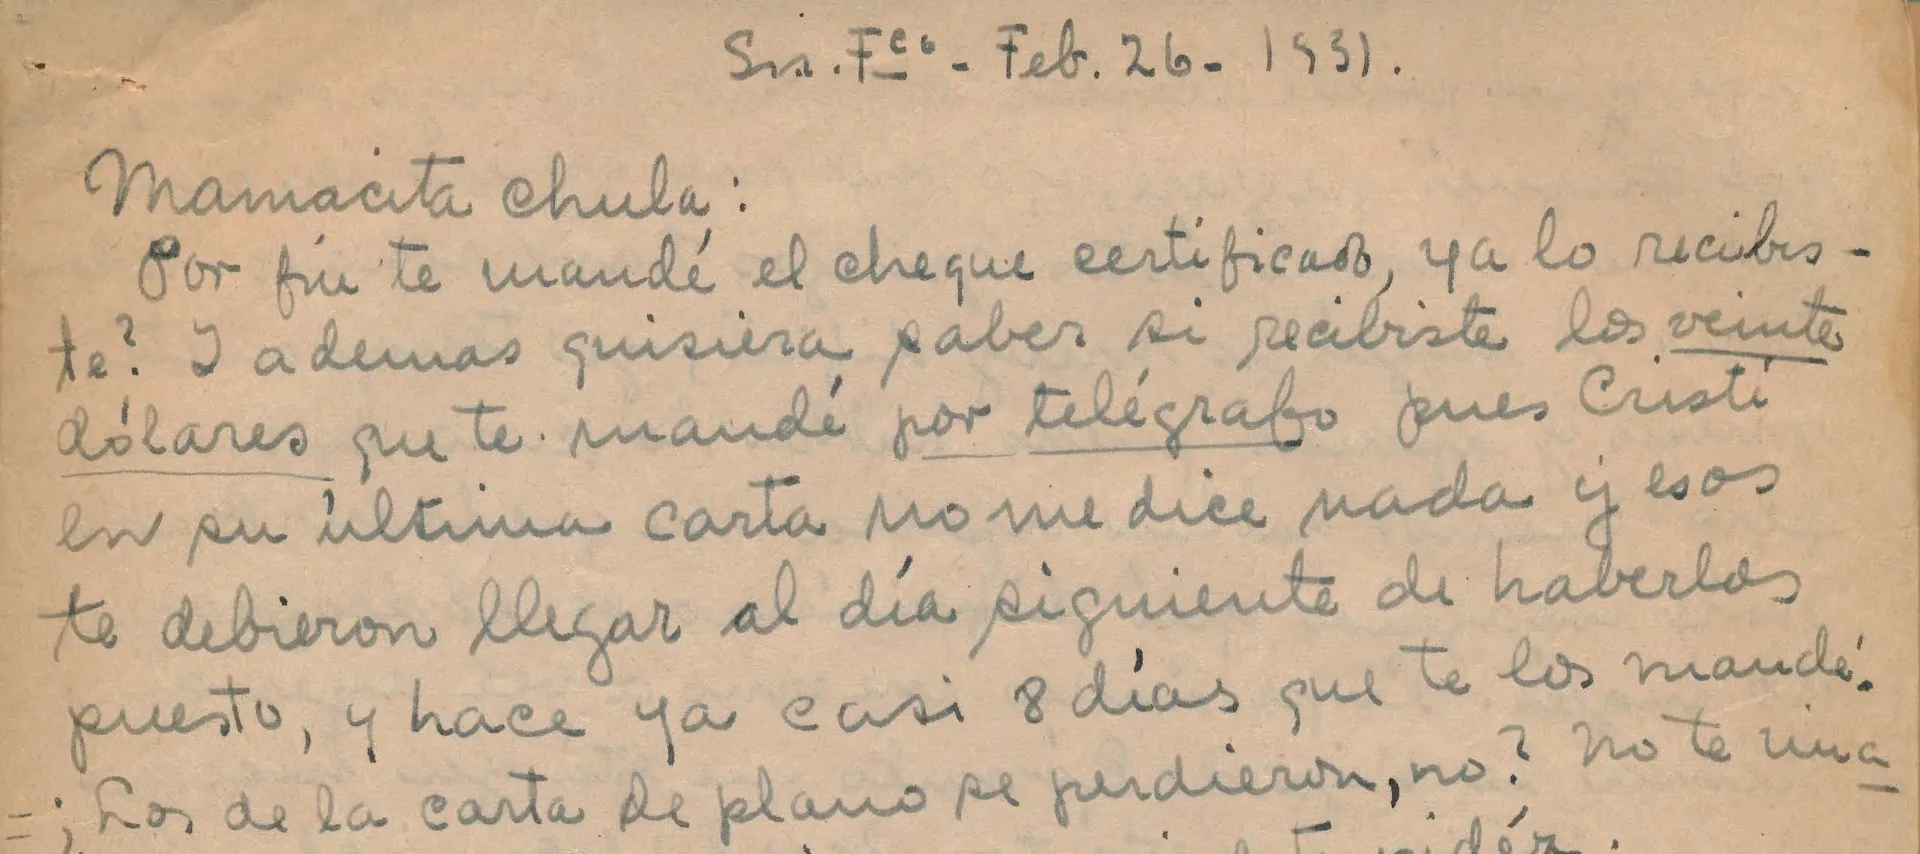 Sn. F^co - Feb. 26 - 1931.
Mamacita chula:
Por fin te mandé el cheque certificado, ya lo recibis-
te? I ademas quisiera saber si recibiste los veinte
dólares que te mandé por telégrafo pues Cristi
en su última carta no me dice nada y esos
te debieron llegar al día siguiente de haberlos
puesto, y hace ya casi 8 días que te los mandé.
¿Los de la carta de plano se perdieron, no? No te ima
=